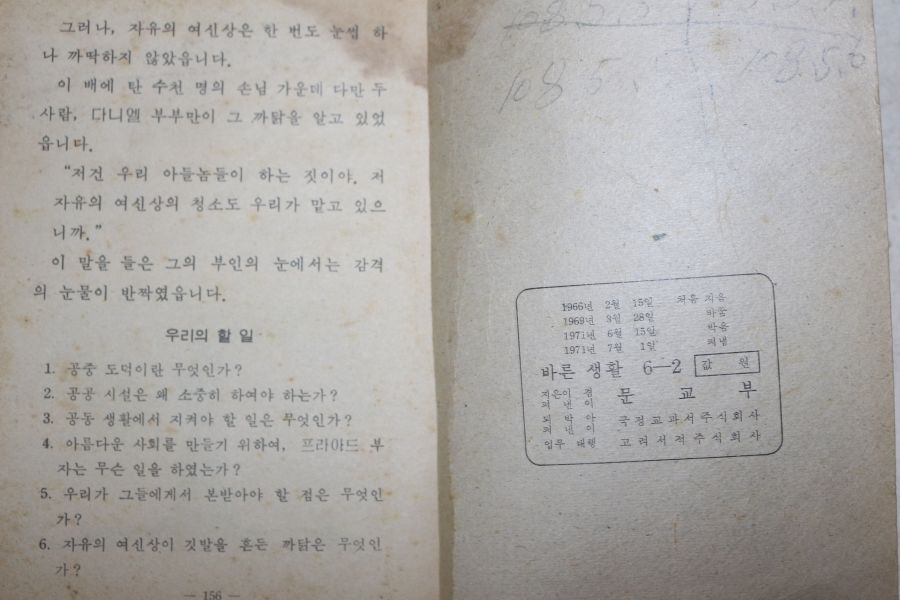 그러나, 자유의 여신상은 한 번도 눈썹 하
나 까딱하지 않았읍니다.
이 배에 탄 수천 명의 손님 가운데 다만 두
사람, 다니엘 부부만이 그 까닭을 알고 있었
읍니다.
“저건 우리 아들놈들이 하는 짓이야. 저
자유의 여신상의 청소도 우리가 맡고 있으
니까.”
이 말을 들은 그의 부인의 눈에서는 감격
의 눈물이 반짝였읍니다.
우리의 할 일
1. 공중 도덕이란 무엇인가?
2. 공공 시설은 왜 소중히 하여야 하는가?
3. 공동 생활에서 지켜야 할 일은 무엇인가?
4. 아름다운 사회를 만들기 위하여, 프라아드 부
자는 무슨 일을 하였는가?
5. 우리가 그들에게서 본받아야 할 점은 무엇인
가?
6. 자유의 여신상이 깃발을 흔든 까닭은 무엇인
가?
— 156 —
108.5.
108.5.6
1966년 2월 15일 처음 지음
1969년 3월 28일 바꿈
1971년 6월 15일 박음
1971년 7월 1일 펴냄
바른 생활 6—2 값 원
지은이 겸 펴낸이 문교부
박아 펴낸이 국정교과서주식회사
업무 대행 고려서적주식회사